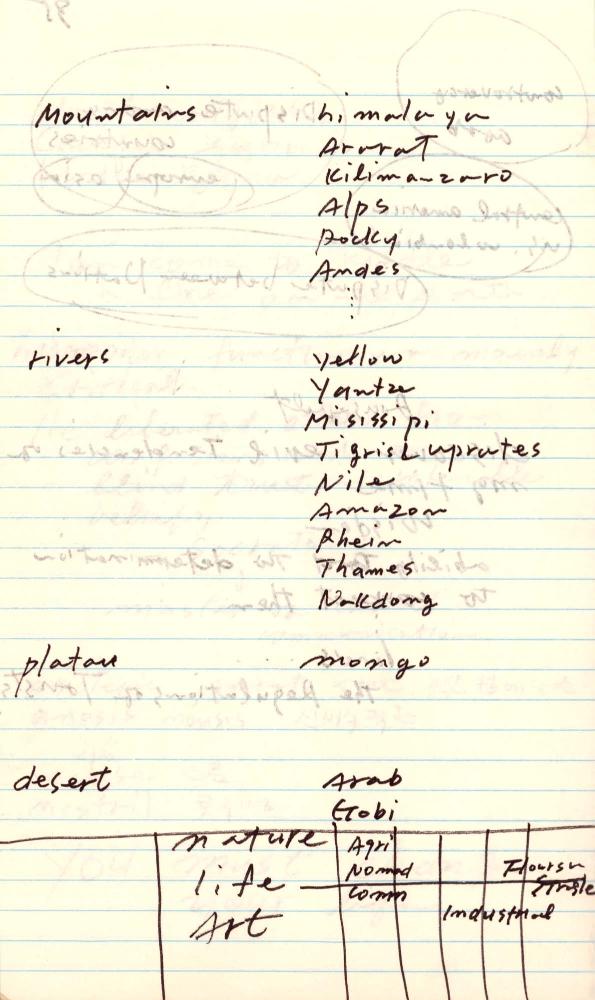 Mountains himalaya
Ararat
Kilimanzaro
Alps
Rocky
Andes
rivers Yellow
Yantze
Misissipi
Tigris Euprates
Nile
Amazon
Rhein
Thames
Nakdong
platau mongo
desert Arab
Gobi
nature Agri
Nomad
life Comm
Art Industrial